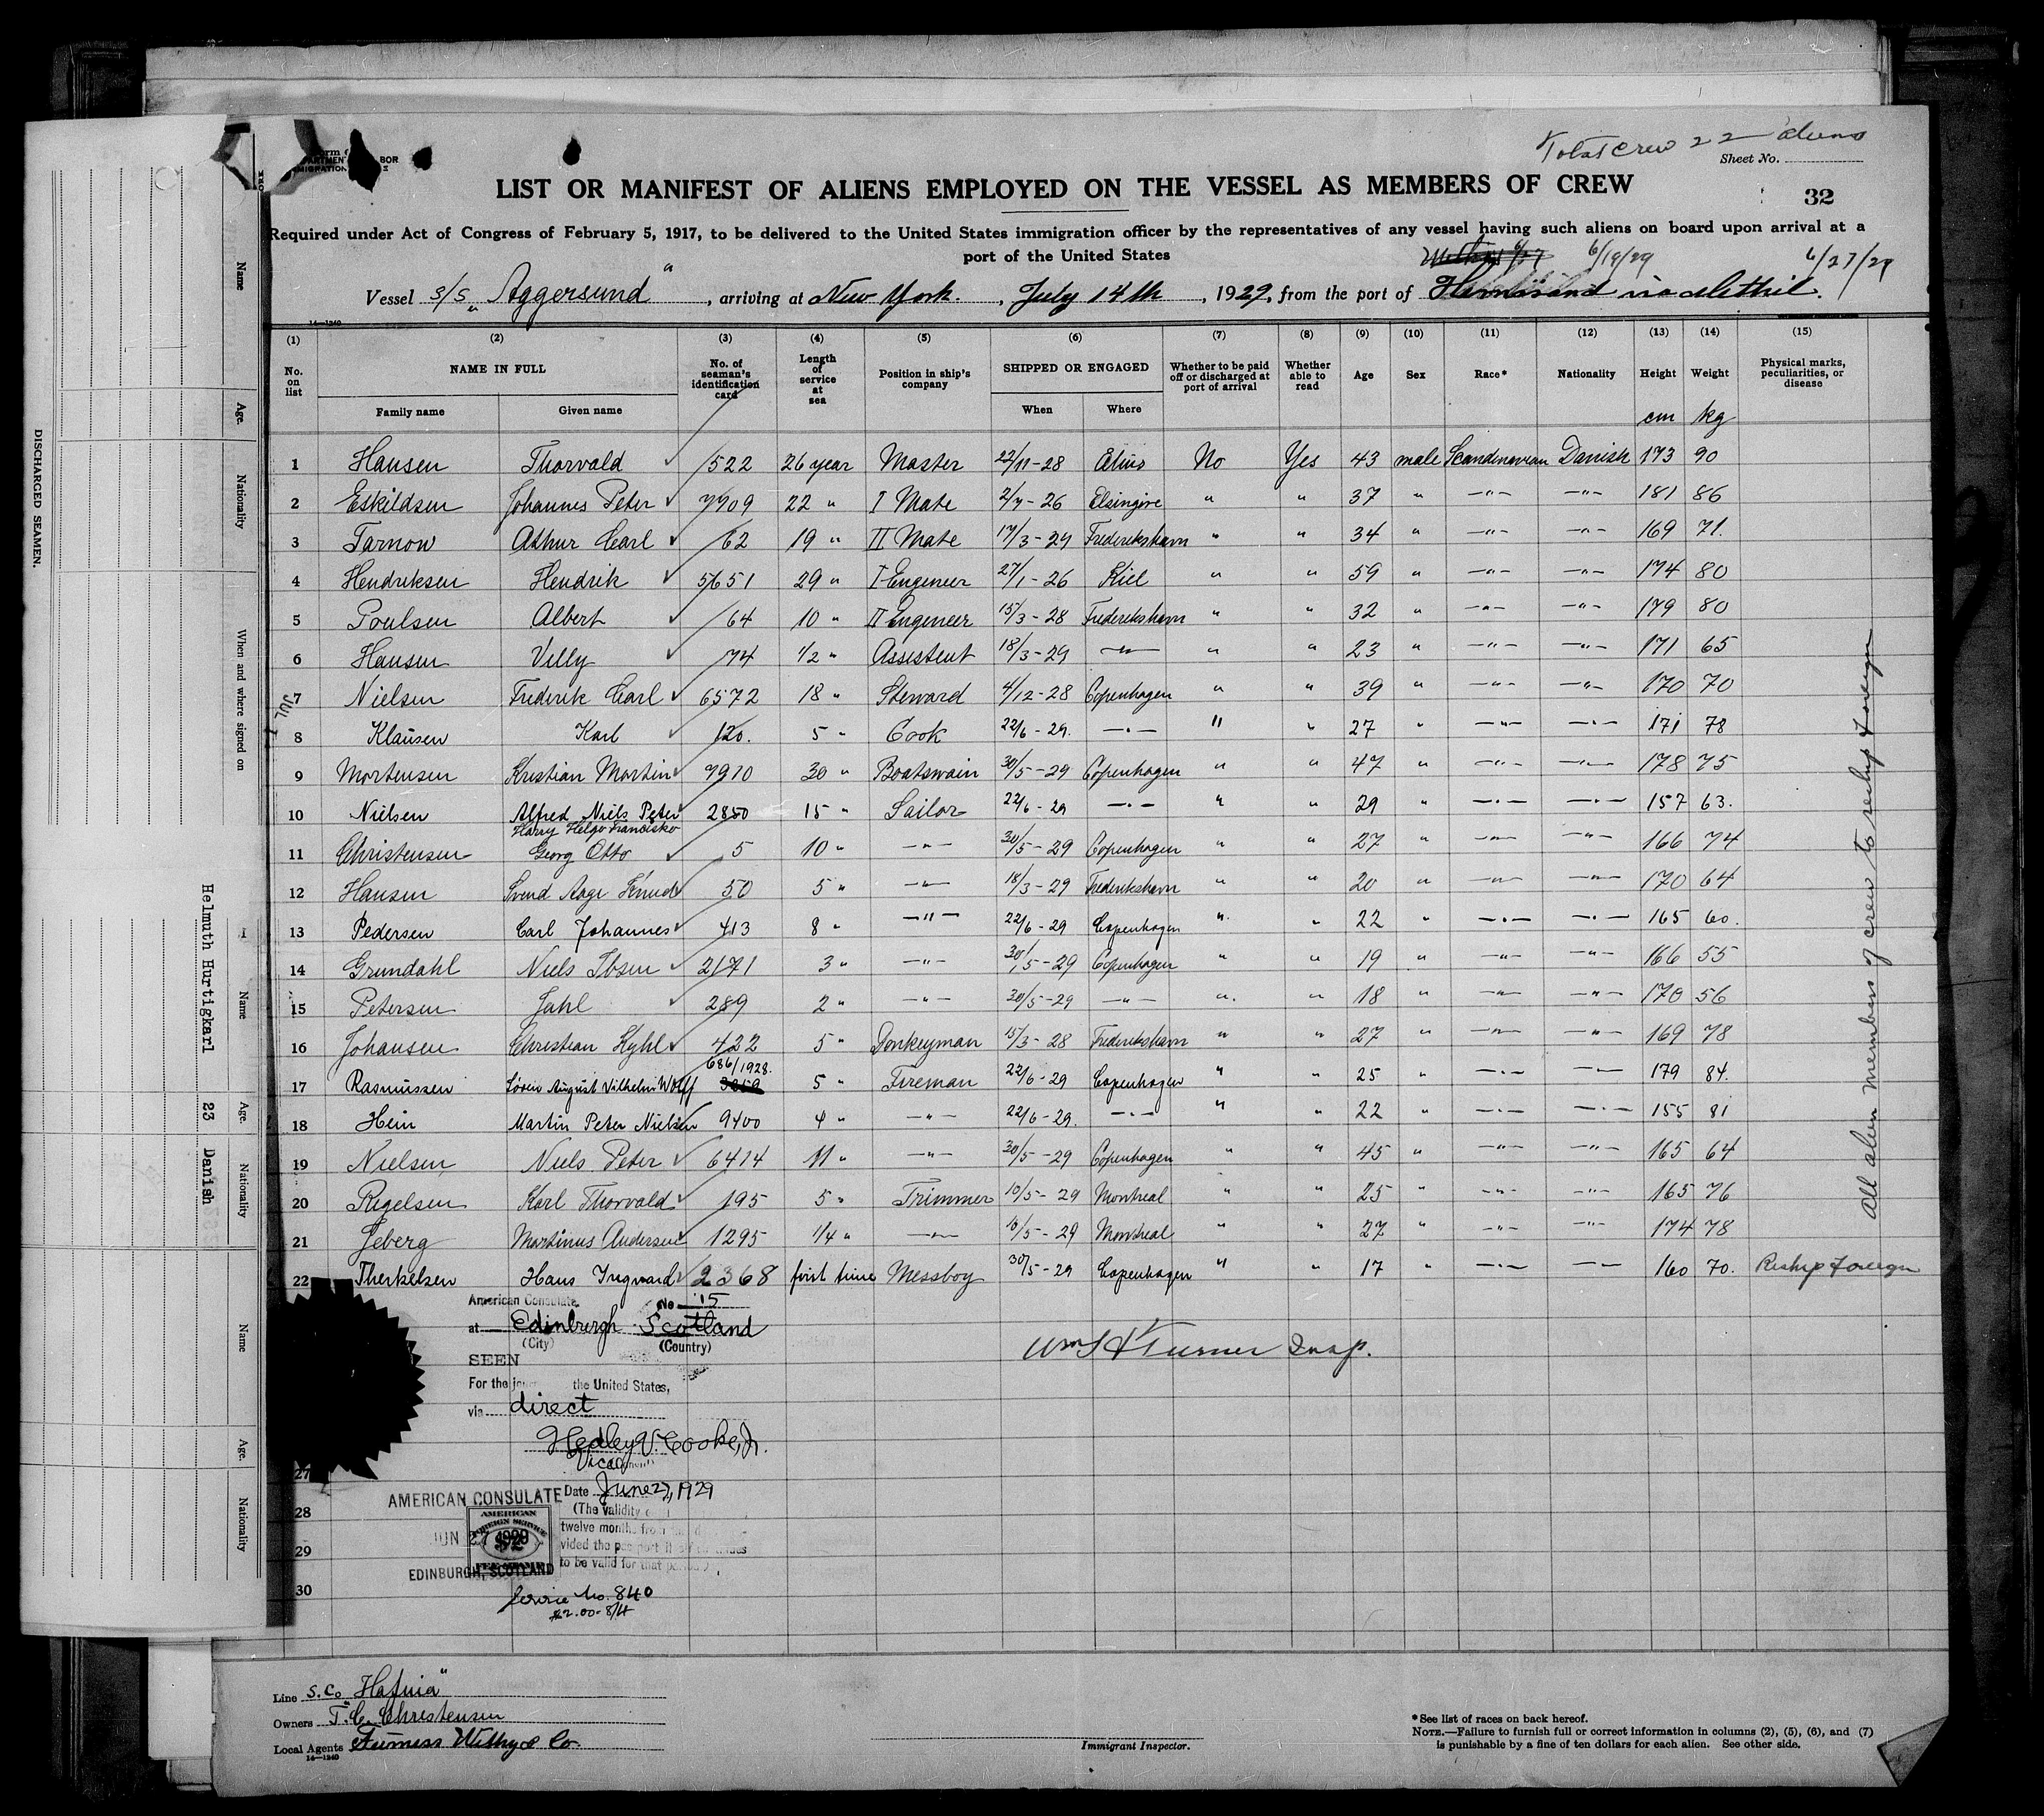 Total crew 22 aliens
Sheet No.
LIST OR MANIFEST OF ALIENS EMPLOYED ON THE VESSEL AS MEMBERS OF CREW
32
Required under Act of Congress of February 5, 1917, to be delivered to the United States immigration officer by the representatives of any vessel having such aliens on board upon arrival at a
port of the United States
6/19/29 6/27/29
Vessel S/S "Aggersund", arriving at New York., July 14th, 1929, from the port of Hernösand via Methil.
14—1240
(1) (2) (3) (4) (5) (6) (7) (8) (9) (10) (11) (12) (13) (14) (15)
No. on list NAME IN FULL No. of seaman's identification card Length of service at sea Position in ship's company SHIPPED OR ENGAGED Whether to be paid off or discharged at port of arrival Whether able to read Age Sex Race* Nationality Height Weight Physical marks, peculiarities, or disease
Family name Given name When Where cm kg
1 Hansen Thorvald 1522 26 year Master 22/11-28 No Yes 43 male Scandinavian Danish 173 90
2 Eskildsen Johannes Peter 7909 22 " I Mate 2/7-26 " " 37 " -"- -"- 181 86
3 Tarnow Athur Carl 62 19 " II Mate 17/3-29 Frederikshavn " " 34 " -"- -"- 169 71.
4 Hendriksen Hendrik 5651 29 " I Engeneer 27/1-26 Kiel " " 59 " -"- -"- 174 80
5 Poulsen Albert 64 10 " II Engeneer 15/3-28 Frederikshavn " " 32 " -"- -"- 179 80
6 Hansen Villy 74 1/2 " Assistent 18/3-29 -"- " " 23 " -"- -"- 171 65
7 Nielsen Frederik Carl 6572 18 " Steward 4/12-28 Copenhagen " " 39 " -"- -"- 170 70
8 Klausen Karl 120. 5 " Cook 22/6-29. -"- " " 27 " -"- -"- 171 78
9 Mortensen Kristian Martin 7910 30 " Boatswain 30/5-29 Copenhagen " " 47 " -"- -"- 178 75
10 Nielsen Alfred Niels Peter 2850 15 " Sailor 22/6-29 -"- " " 29 " -"- -"- 157 63.
Harry Helge Francisko
11 Christensen Georg Otto 5 10 " -"- 30/5-29 Copenhagen " " 27 " -"- -"- 166 74
12 Hansen Svend Aage Knud 50 5 " -"- 18/3-29 Frederikshavn " " 20 " -"- -"- 170 64
13 Pedersen Carl Johannes 413 8 " -"- 22/6-29 Copenhagen " " 22 " -"- -"- 165 60.
14 Grundahl Niels Ibsen 2171 3 " -"- 30/5-29 Copenhagen " " 19 " -"- -"- 166 55
15 Petersen Jahl 289 2 " -"- 30/5-29 -"- " " 18 " -"- -"- 170 56
16 Johansen Christian Kyhl 422 5 " Donkeyman 15/3-28 Frederikshavn " " 27 " -"- -"- 169 78
686/1928.
17 Rasmussen Sören August Vilhelm Wolff 5 " Fireman 22/6-29 Copenhagen " " 25 " -"- -"- 179 84.
18 Hein Martin Peter Nielsen 9400 4 " -"- 22/6-29. -"- " " 22 " -"- -"- 155 81
19 Nielsen Niels Peter 6414 11 " -"- 30/5-29 Copenhagen " " 45 " -"- -"- 165 64
20 Regelsen Karl Thorvald 195 5 " Trimmer 10/5-29 Montreal " " 25 " -"- -"- 165 76
21 Jeberg Martinus Andersen 1295 1/4 " -"- 10/5-29 Montreal " " 27 " -"- -"- 174 78
22 Therkelsen Hans Ingvard 2368 first time Messboy 30/5-29 Copenhagen " " 17 " -"- -"- 160 70. Reship Foreign
All alien members of crew to reship foreign
American Consulate No 15
at Edinburgh Scotland
(City) (Country)
SEEN
For the the United States,
via direct
Hedley V. Cooke, Jr.
Vice
Date June 27, 1929
(The validity
twelve months from
to be valid for that period)
AMERICAN CONSULATE
JUN 27 1929
AMERICAN FOREIGN SERVICE
$2
FEE STAMP
EDINBURGH, SCOTLAND
Service No. 840
$2.00 - 8/4
Wm H Turner Insp.
27
28
29
30
Line S. Co "Hafnia"
Owners T. C. Christensen
Local Agents Furness Withy & Co
14—1240
Immigrant Inspector.
*See list of races on back hereof.
NOTE.—Failure to furnish full or correct information in columns (2), (5), (6), and (7)
is punishable by a fine of ten dollars for each alien. See other side.
DISCHARGED SEAMEN.
Name Age. Nationality When and where signed on
Name Age. Nationality
Helmuth Hurtigkarl 23 Danish
Name Age. Nationality